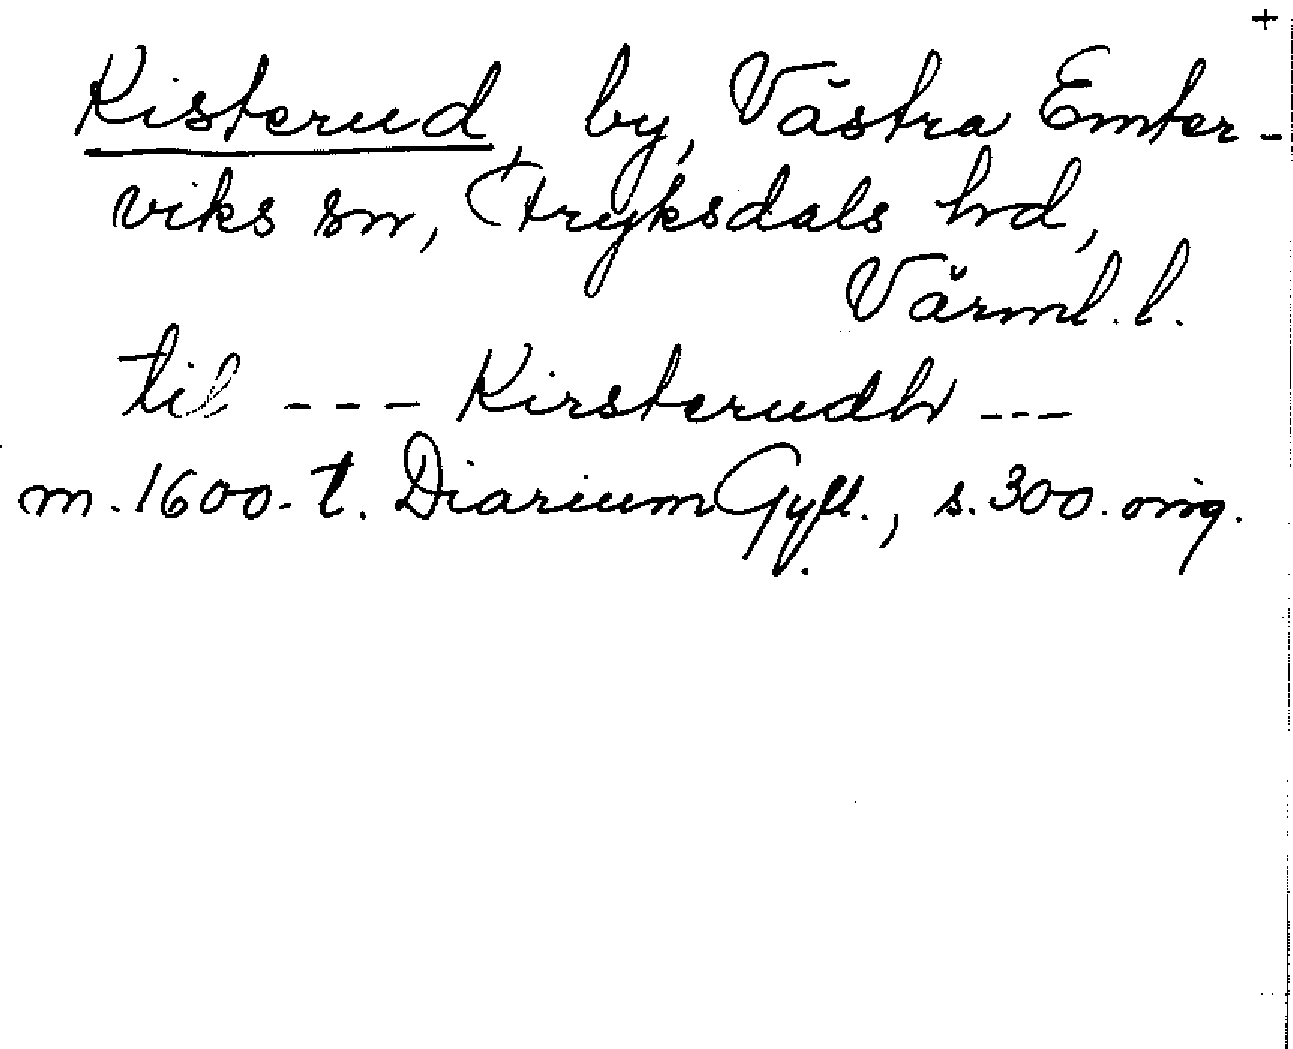 +
Kisterud, by, Västra Emter-
viks sn, Fryksdals hrd,
Värml. l.
til --- Kirsterudh ---
m. 1600-t. Diarium Gyll., s. 300. orig.